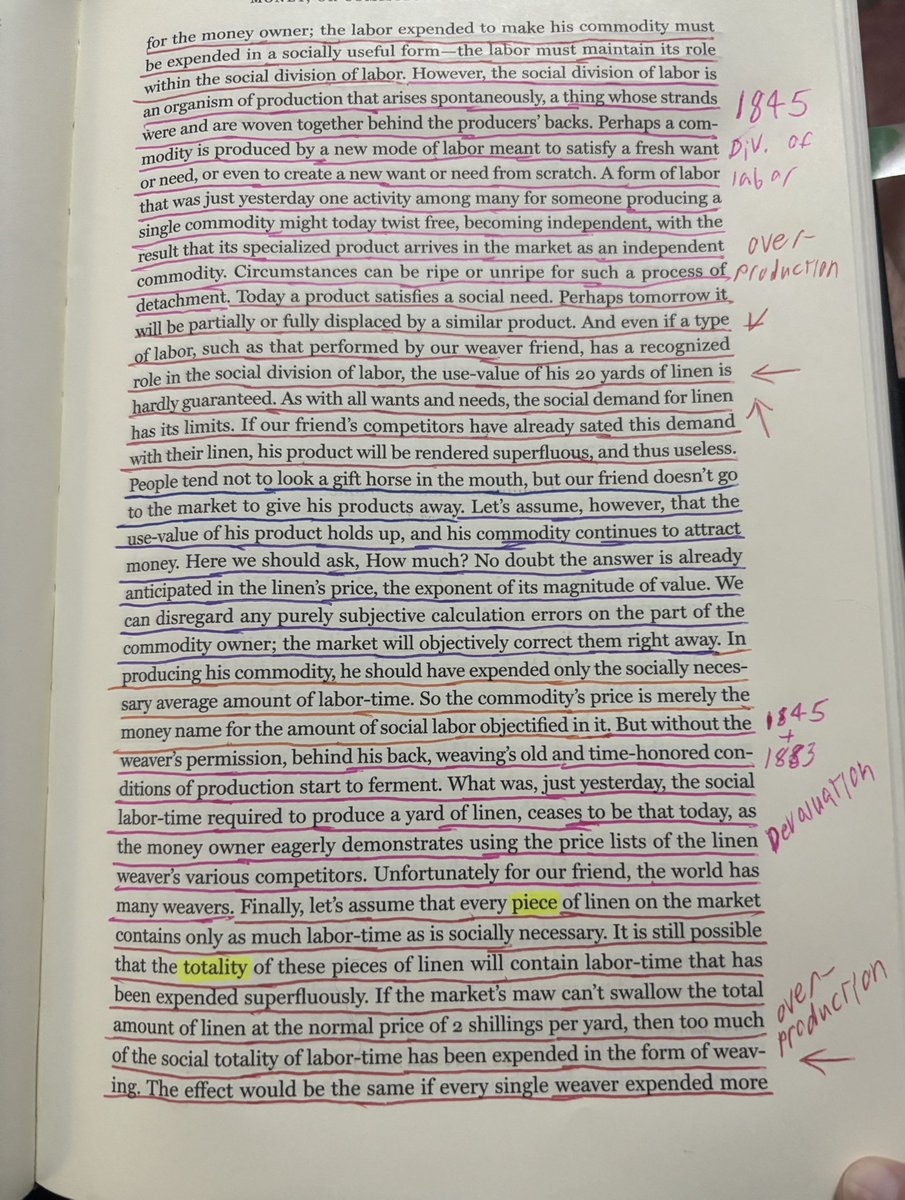 MONEY, OR COMMOD
for the money owner; the labor expended to make his commodity must
be expended in a socially useful form—the labor must maintain its role
within the social division of labor. However, the social division of labor is
an organism of production that arises spontaneously, a thing whose strands
were and are woven together behind the producers' backs. Perhaps a com-
modity is produced by a new mode of labor meant to satisfy a fresh want
or need, or even to create a new want or need from scratch. A form of labor
that was just yesterday one activity among many for someone producing a
single commodity might today twist free, becoming independent, with the
result that its specialized product arrives in the market as an independent
commodity. Circumstances can be ripe or unripe for such a process of
detachment. Today a product satisfies a social need. Perhaps tomorrow it
will be partially or fully displaced by a similar product. And even if a type
of labor, such as that performed by our weaver friend, has a recognized
role in the social division of labor, the use-value of his 20 yards of linen is
hardly guaranteed. As with all wants and needs, the social demand for linen
has its limits. If our friend's competitors have already sated this demand
with their linen, his product will be rendered superfluous, and thus useless.
People tend not to look a gift horse in the mouth, but our friend doesn't go
to the market to give his products away. Let's assume, however, that the
use-value of his product holds up, and his commodity continues to attract
money. Here we should ask, How much? No doubt the answer is already
anticipated in the linen's price, the exponent of its magnitude of value. We
can disregard any purely subjective calculation errors on the part of the
commodity owner; the market will objectively correct them right away. In
producing his commodity, he should have expended only the socially neces-
sary average amount of labor-time. So the commodity's price is merely the
money name for the amount of social labor objectified in it. But without the
weaver's permission, behind his back, weaving's old and time-honored con-
ditions of production start to ferment. What was, just yesterday, the social
labor-time required to produce a yard of linen, ceases to be that today, as
the money owner eagerly demonstrates using the price lists of the linen
weaver's various competitors. Unfortunately for our friend, the world has
many weavers. Finally, let's assume that every piece of linen on the market
contains only as much labor-time as is socially necessary. It is still possible
that the totality of these pieces of linen will contain labor-time that has
been expended superfluously. If the market's maw can't swallow the total
amount of linen at the normal price of 2 shillings per yard, then too much
of the social totality of labor-time has been expended in the form of weav-
ing. The effect would be the same if every single weaver expended more
1845
Div. of
labor
over-
production
1845
+
1883
Devaluation
over-
production